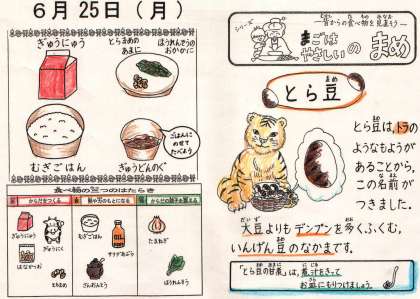 6月25日(月)
ぎゅうにゅう
とらまめの
あまに
ほうれんそうの
おかかに
むぎごはん
ぎゅうどんのぐ
ごはんに
のせて
たべよう
食べ物の三つのはたらき
からだをつくる
熱や力のもとになる
からだの調子を整える
ぎゅうにゅう
ぎゅうにく
むぎごはん
サラダあぶら
たまねぎ
はながつお
とらまめ
さとう
ほうれんそう
シリーズ
昔からの食べ物を見直そう
まごは
やさしいの
まめ
とら豆
まめ
とら豆は、トラの
ようなもようが
あることから、
この名前が
つきました。
だいず
大豆よりもデンプンを多くふくむ、
いんげん豆のなかまです。
「とら豆の甘煮」は、煮汁をきって
お皿にもりつけましょう。